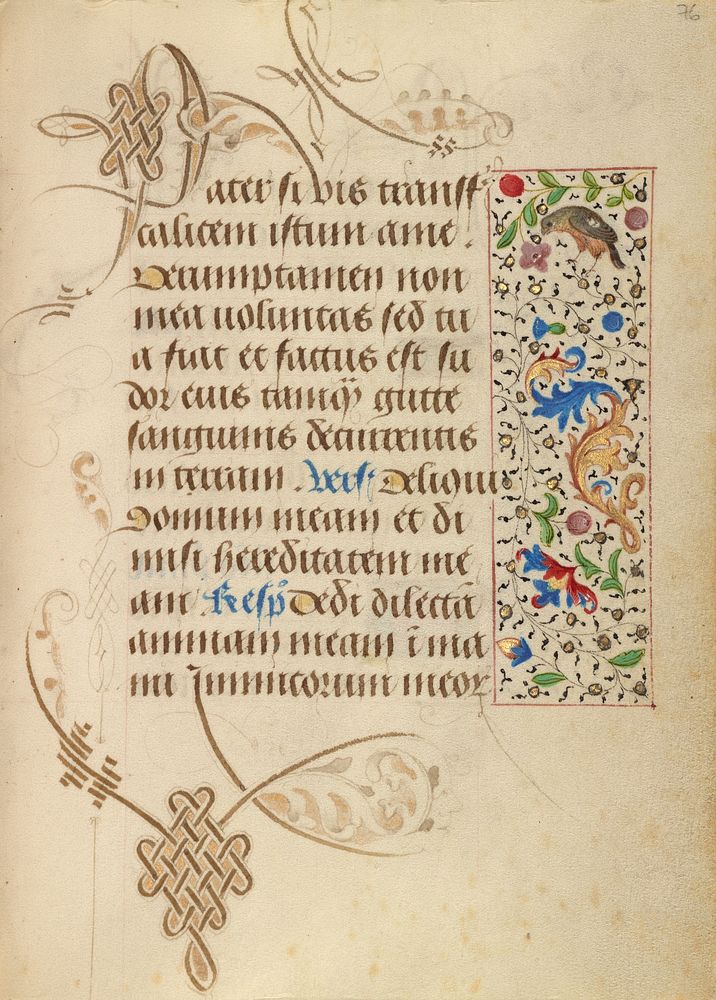 76
Pater si vis transf
calicem istum a me.
Verumptamen non
mea voluntas sed tu
a fiat et factus est su
dor eius tamq̄ gutte
sanguinis decurrentis
in terram. Vers: Reliqui
domum meam et di
misi hereditatem me
am. Resp̄ Dedi dilectā
animam meam ī ma
nu Inimicorum meor